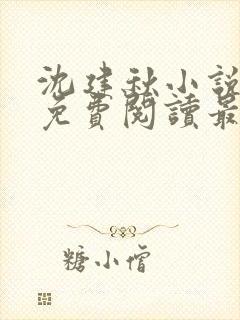 沈建秋小說
免費閱讀最
糖小僧